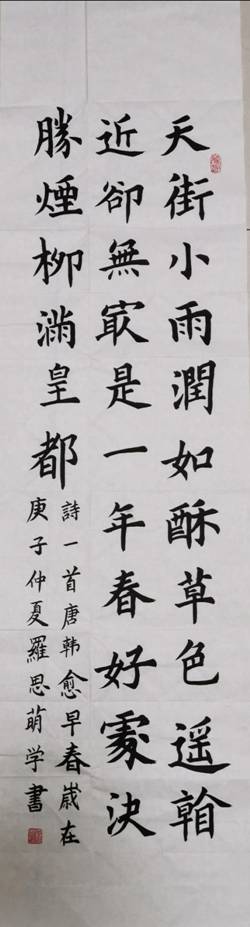 天街小雨潤如酥草色遥
近卻無㝡是一年春好處決
勝煙柳滿皇都
詩一首唐韩愈早春歲在
庚子仲夏羅思萌学書